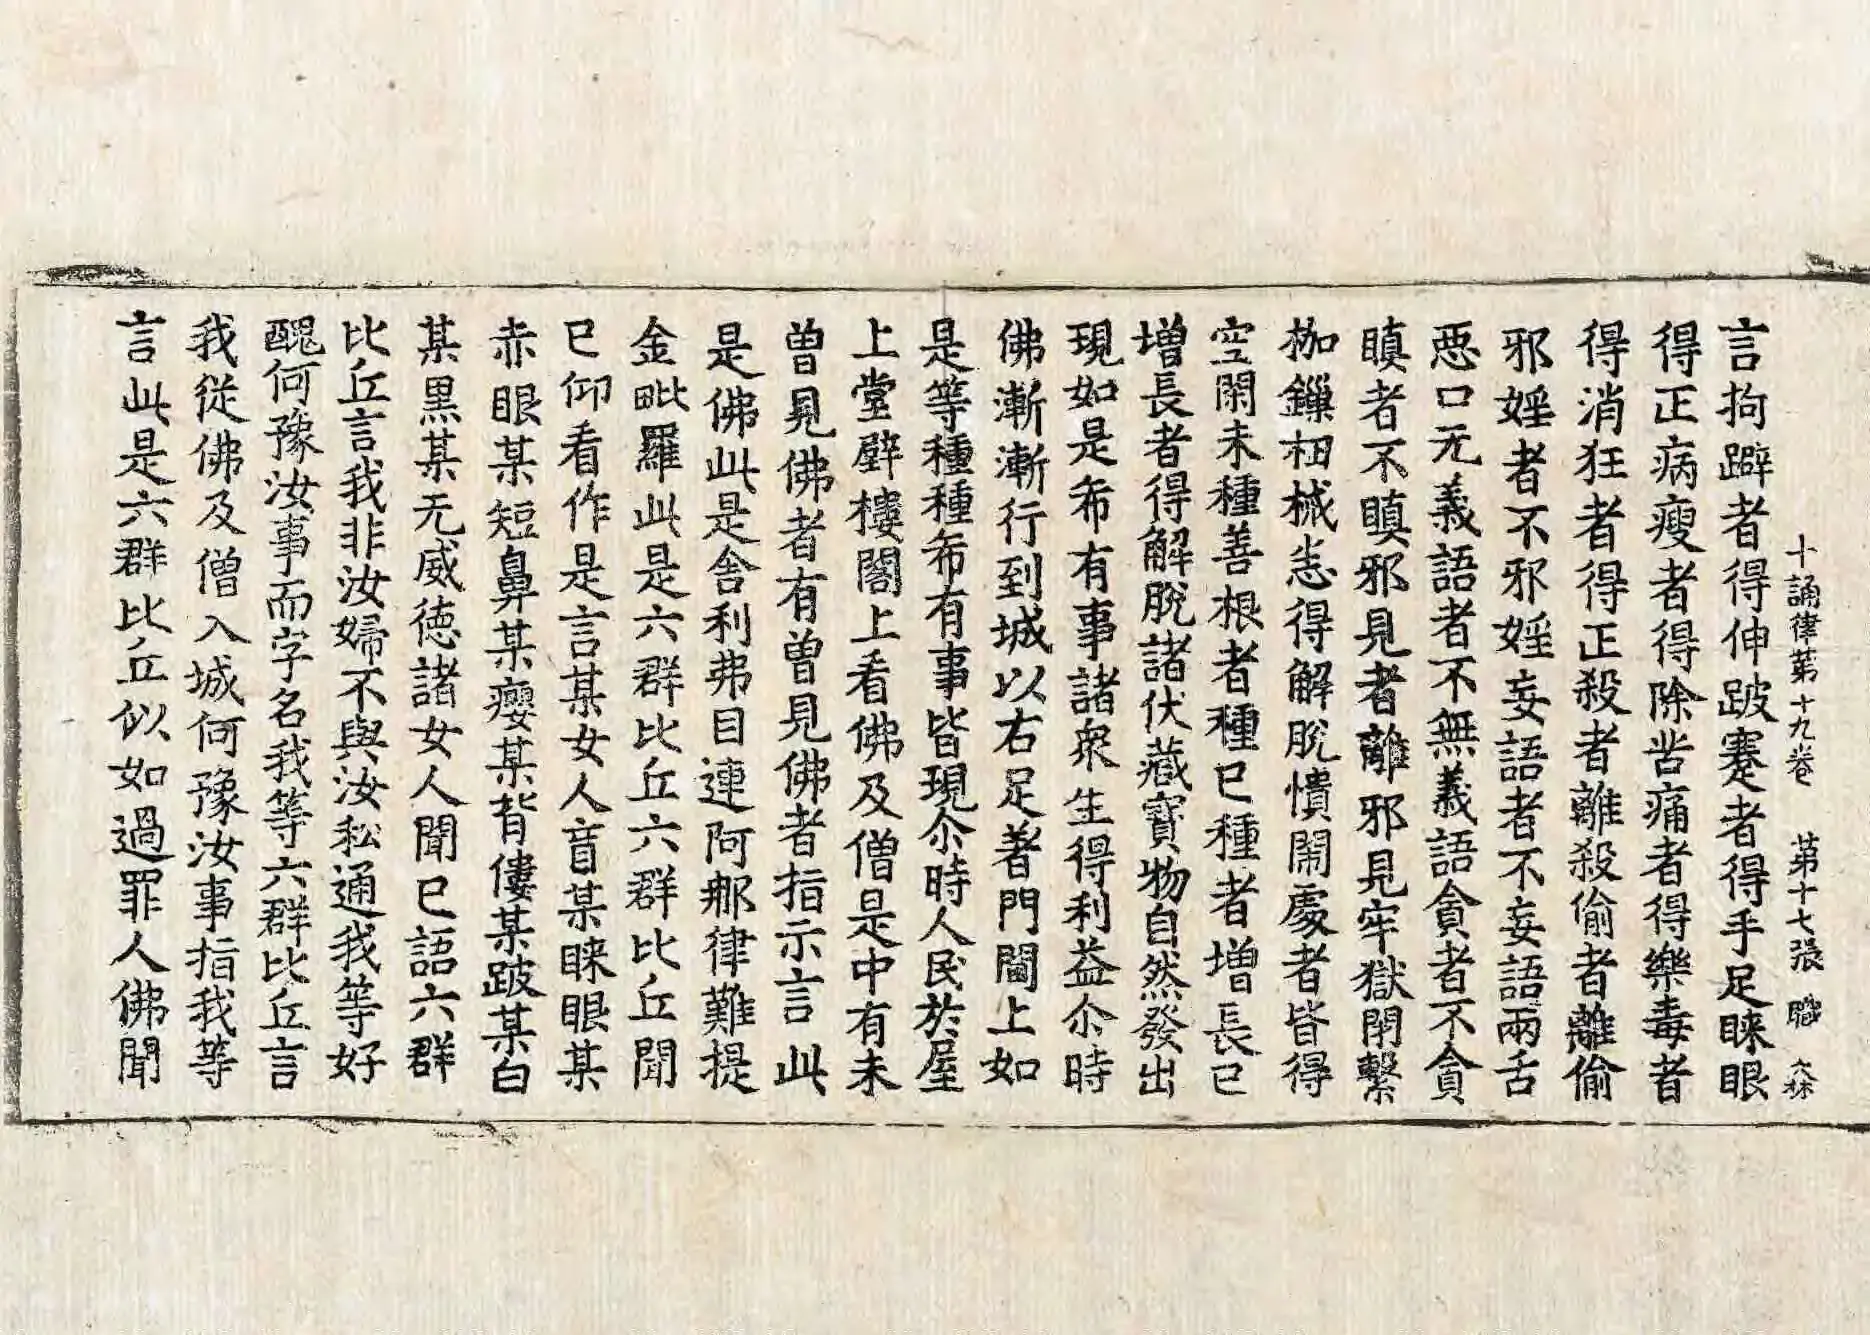 十誦律苐十九卷 苐十七張 職 大林
言拘躃者得伸跛蹇者得手足睞眼
得正病瘦者得除苦痛者得樂毒者
得消狂者得正殺者離殺偷者離偷
邪婬者不邪婬妄語者不妄語兩舌
惡口无義語者不無義語貪者不貪
瞋者不瞋邪見者離邪見牢獄閉繫
枷鏁杻械恙得解脫憒閙處者皆得
空閑未種善根者種已種者增長已
增長者得解脫諸伏藏寶物自然發出
現如是希有事諸衆生得利益尒時
佛漸漸行到城以右足著門閫上如
是等種種希有事皆現尒時人民於屋
上堂壁樓閣上看佛及僧是中有未
曾見佛者有曽見佛者指示言此
是佛此是舍利弗目連阿那律難提
金毗羅此是六群比丘六群比丘聞
已仰看作是言某女人盲某睞眼某
赤眼某短鼻某癭某背僂某跛某白
某黒某无威徳諸女人聞已語六群
比丘言我非汝婦不與汝私通我等好
醜何豫汝事而字名我等六群比丘言
我從佛及僧入城何豫汝事指我等
言此是六群比丘似如過罪人佛聞